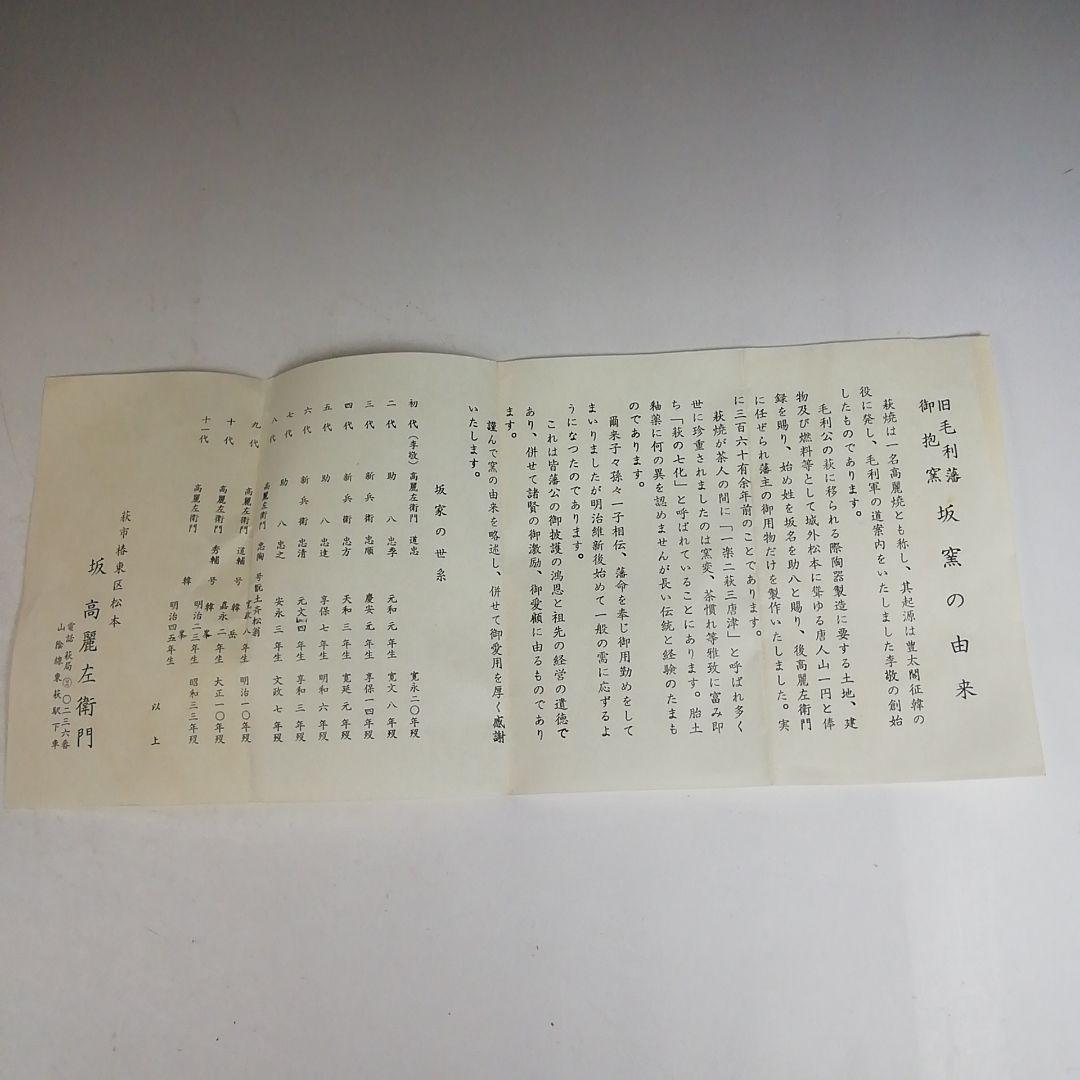 旧毛利藩
御抱窯
坂窯の由来
萩焼は一名高麗焼とも称し、其起源は豊太閤征韓の
役に発し、毛利軍の道案内をいたしました李敬の創始
したものであります。
毛利公の萩に移られる際陶器製造に要する土地、建
物及び燃料等として城外松本に聳ゆる唐人山一円と俸
録を賜り、始め姓を坂名を助八と賜り、後高麗左衛門
に任ぜられ藩主の御用物だけを製作いたしました。実
に三百六十有余年前のことであります。
萩焼が茶人の間に「一楽二萩三唐津」と呼ばれ多く
世に珍重されましたのは窯変、茶慣れ等雅致に富み即
ち「萩の七化」と呼ばれていることにあります。胎土
釉薬に何の異を認めませんが長い伝統と経験のたまも
のであります。
爾来子々孫々一子相伝、藩命を奉じ御用勤めをして
まいりましたが明治維新後始めて一般の需に応ずるよ
うになつたのであります。
これは皆藩公の御披護の鴻恩と祖先の経営の遺徳で
あり、併せて諸賢の御激励、御愛顧に由るものであり
ます。
謹んで窯の由来を略述し、併せて御愛用を厚く感謝
いたします。
坂家の世系
初代(李敬)高麗左衛門 道忠 寛永二〇年歿
二代 助八 忠季 元和元年生 寛文八年歿
三代 新兵衛 忠順 慶安元年生 享保一四年歿
四代 新兵衛 忠方 天和三年生 寛延元年歿
五代 助八 忠達 享保七年生 明和六年歿
六代 新兵衛 忠清 元文四年生 享和三年歿
七代 助八 忠之 安永三年生 文政七年歿
八代 高麗左衛門 忠陶 号 土斉松翁
九代 高麗左衛門 道輔 号 韓岳 八年生 明治一〇年歿
十代 高麗左衛門 秀輔 号 韓峯 嘉永二年生 大正一〇年歿
十一代 高麗左衛門 韓峯 明治二三年生 昭和三三年歿
明治四五年生
以上
萩市椿東区松本
坂高麗左衛門
電話萩局②〇二三六番
山陰線東萩駅下車